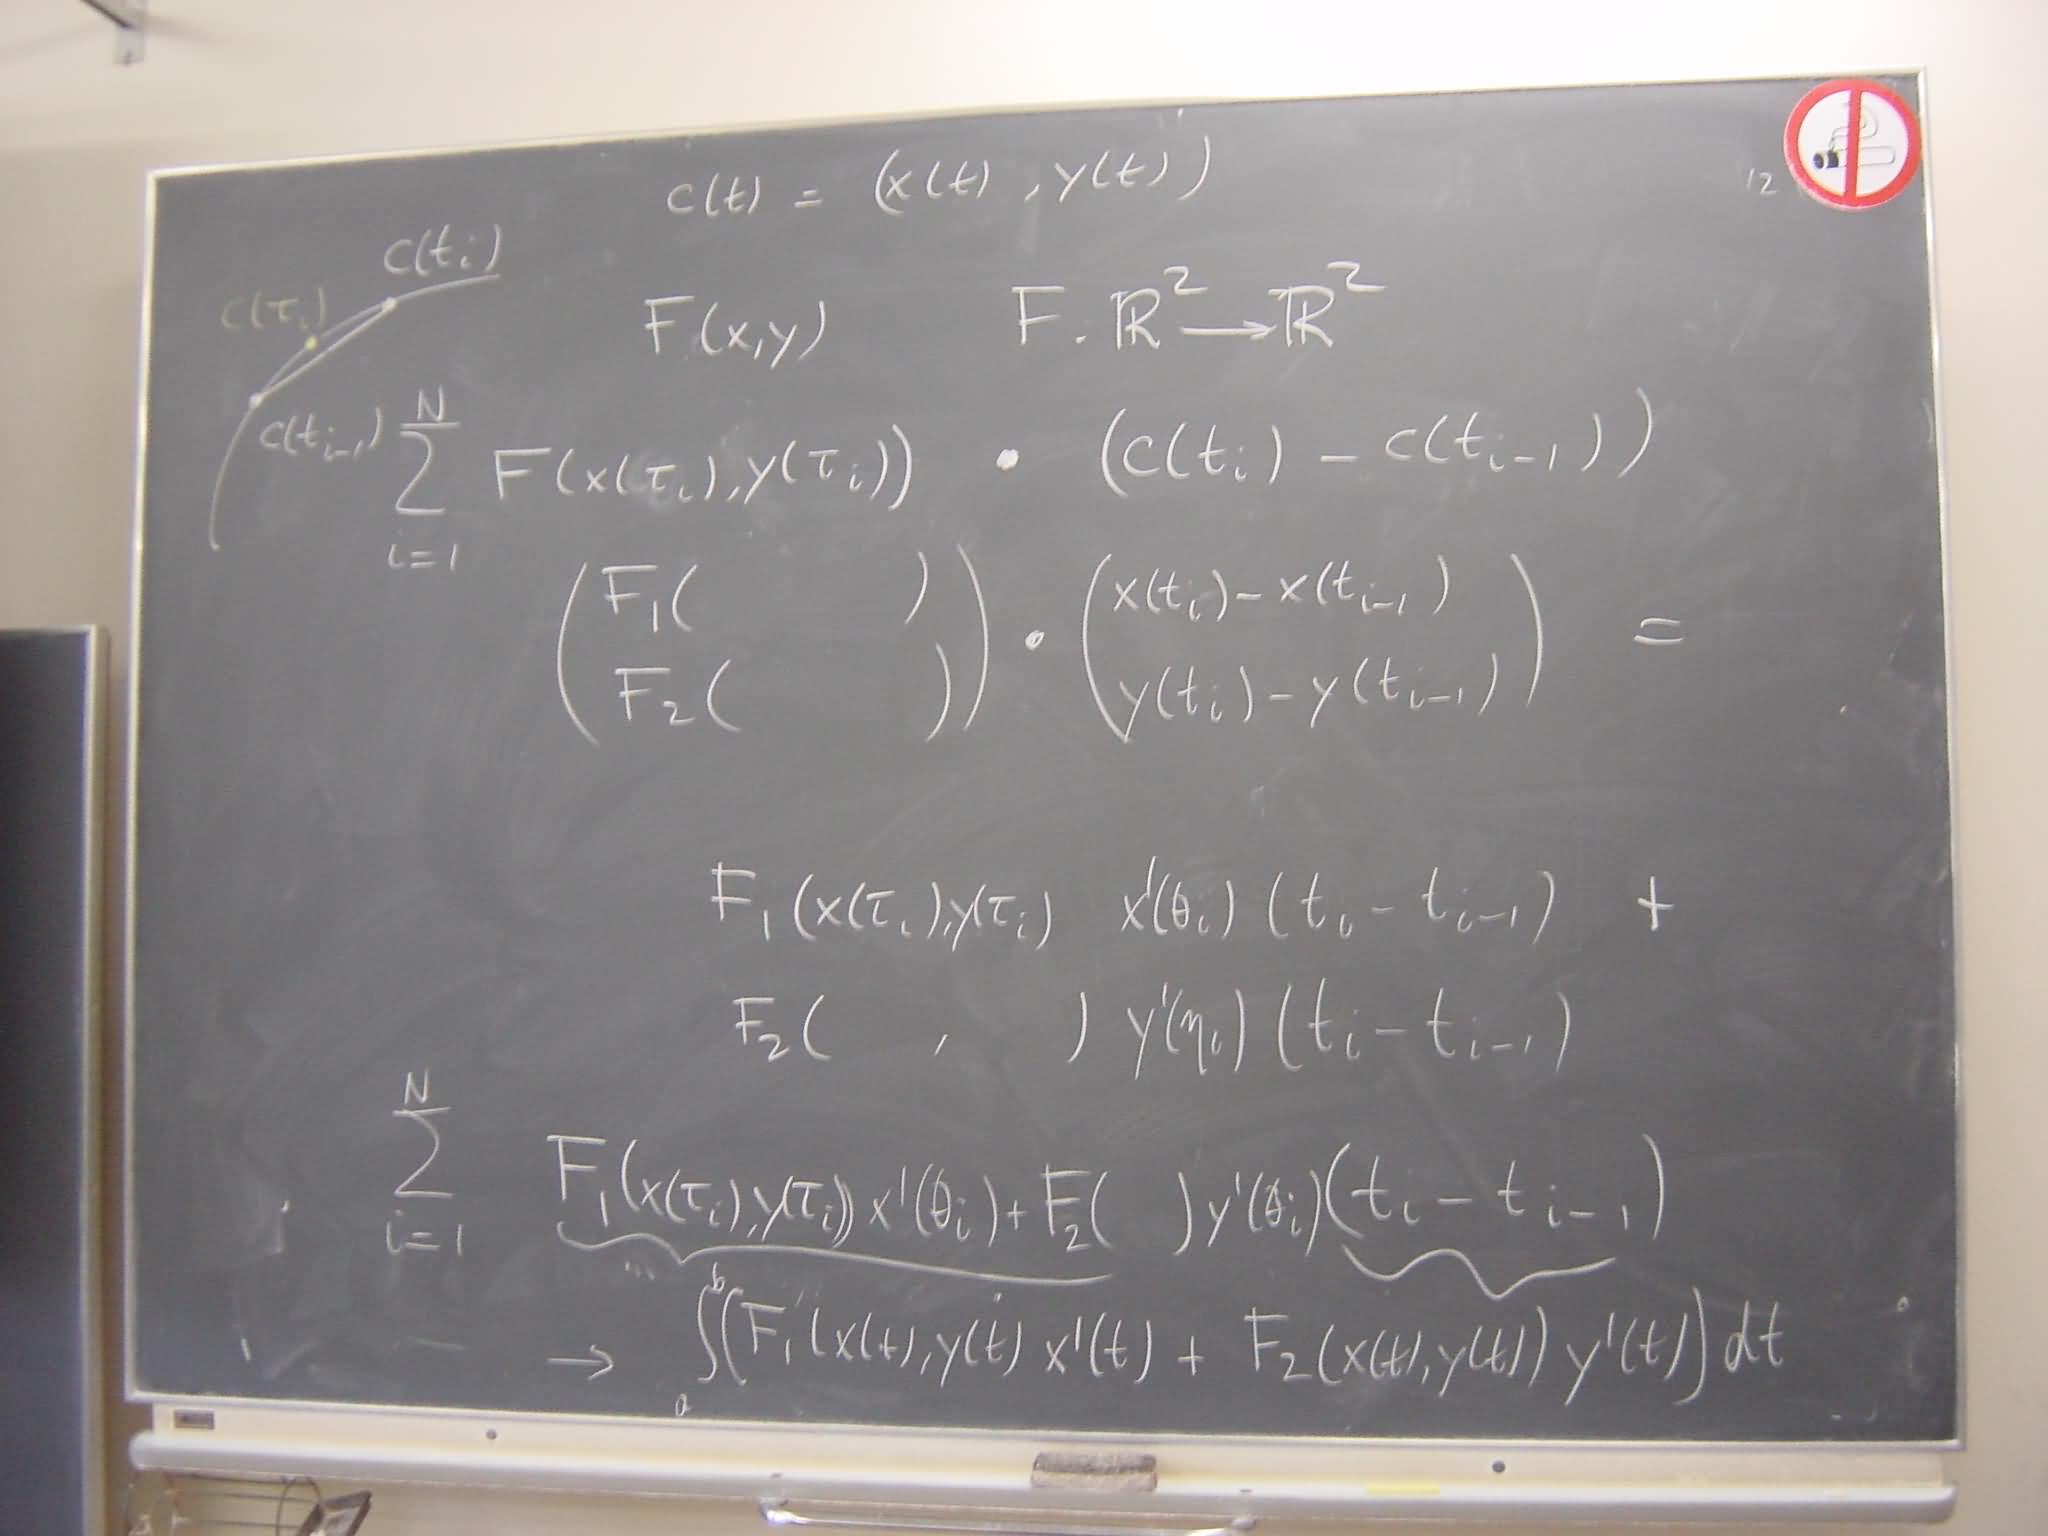 c(t) = (x(t), y(t))
12
c(t_i)
c(τ_i)
c(t_{i-1})
F(x,y) F: ℝ² → ℝ²
∑_{i=1}^{N} F(x(τ_i), y(τ_i)) • (c(t_i) - c(t_{i-1}))
(F₁( ) • (x(t_i) - x(t_{i-1})
F₂( )) y(t_i) - y(t_{i-1})) =
F₁(x(τ_i), y(τ_i) x'(θ_i) (t_i - t_{i-1}) +
F₂( , ) y'(η_i) (t_i - t_{i-1})
∑_{i=1}^{N} F₁(x(τ_i), y(τ_i)) x'(θ_i) + F₂( ) y'(θ_i) (t_i - t_{i-1})
...
→ ∫_a^b (F₁(x(t), y(t) x'(t) + F₂(x(t), y(t)) y'(t)) dt